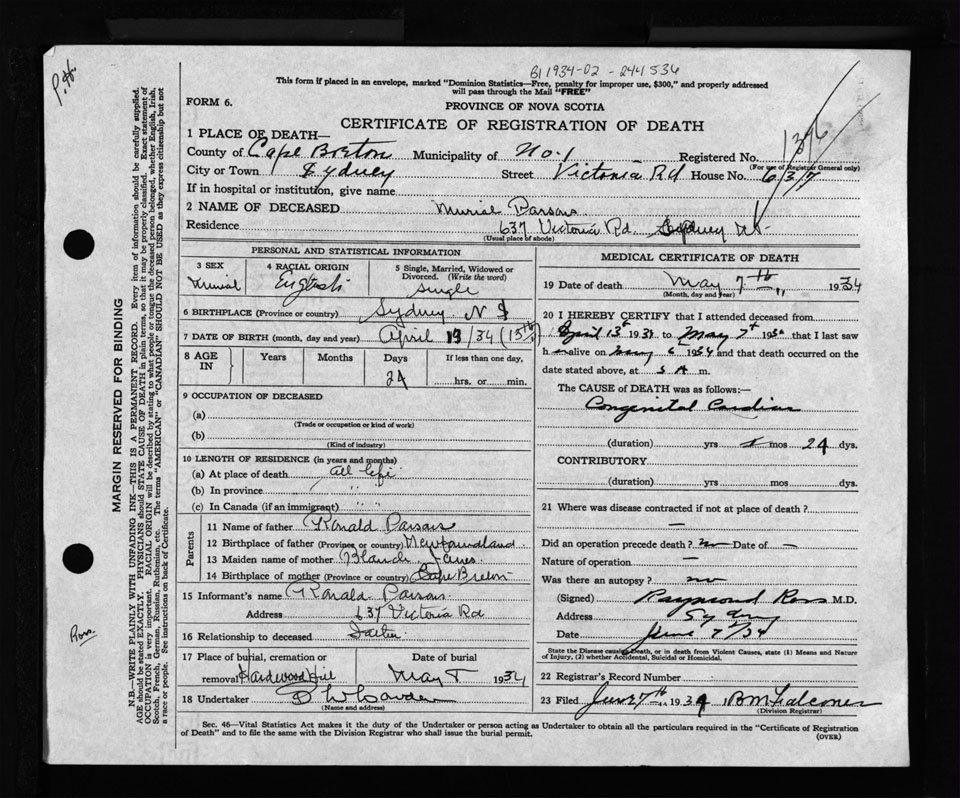 B1 1934-02-244536
P.H.
This form if placed in an envelope, marked "Dominion Statistics—Free, penalty for improper use, $300," and properly addressed
will pass through the Mail "FREE"
FORM 6.
PROVINCE OF NOVA SCOTIA
CERTIFICATE OF REGISTRATION OF DEATH
1 PLACE OF DEATH—
County of Cape Breton Municipality of No. 1 Registered No.
(For use of Registrar General only)
City or Town Sydney Street Victoria Rd House No. 637
If in hospital or institution, give name
2 NAME OF DECEASED Murial Parsons
Residence 637 Victoria Rd Sydney NS
(Usual place of abode)
PERSONAL AND STATISTICAL INFORMATION
3 SEX 4 RACIAL ORIGIN 5 Single, Married, Widowed or
Divorced. (Write the word)
Murial English Single
6 BIRTHPLACE (Province or country) Sydney N S
7 DATE OF BIRTH (month, day and year) April 13/34 (13th)
8 AGE IN Years Months Days If less than one day,
24 hrs. or min.
9 OCCUPATION OF DECEASED
(a)
(Trade or occupation or kind of work)
(b)
(Kind of industry)
10 LENGTH OF RESIDENCE (in years and months)
(a) At place of death all life
(b) In province " "
(c) In Canada (if an immigrant) " "
Parents
11 Name of father Ronald Parsons
12 Birthplace of father (Province or country) Newfoundland
13 Maiden name of mother Blanch
14 Birthplace of mother (Province or country) Cape Breton
15 Informant's name Ronald Parsons
Address 637 Victoria Rd
16 Relationship to deceased Father
17 Place of burial, cremation or Date of burial
removal Hardwood Hill May 8 1934
18 Undertaker
(Name and address)
MEDICAL CERTIFICATE OF DEATH
19 Date of death May 7th " 1934
(Month, day and year)
20 I HEREBY CERTIFY that I attended deceased from
April 13th 1934 to May 7th 1934 that I last saw
h alive on May 6 1934 and that death occurred on the
date stated above, at 5 A m.
The CAUSE OF DEATH was as follows:—
Congenital Cardiac
(duration) yrs mos 24 dys.
CONTRIBUTORY
(duration) yrs mos dys.
21 Where was disease contracted if not at place of death?
—
Did an operation precede death? no Date of —
Nature of operation —
Was there an autopsy? no
(Signed) Raymond Ross M.D.
Address Sydney
Date June 7/34
State the Disease causing Death, or in death from Violent Causes, state (1) Means and Nature
of Injury, (2) whether Accidental, Suicidal or Homicidal.
22 Registrar's Record Number
23 Filed June 7th 1934 B M Falconer
(Division Registrar)
Sec. 46—Vital Statistics Act makes it the duty of the Undertaker or person acting as Undertaker to obtain all the particulars required in the "Certificate of Registration
of Death" and to file the same with the Division Registrar who shall issue the burial permit.
(OVER)
MARGIN RESERVED FOR BINDING
N.B.—WRITE PLAINLY WITH UNFADING INK—THIS IS A PERMANENT RECORD. Every item of information should be carefully supplied.
AGE should be stated EXACTLY. PHYSICIANS should STATE CAUSE OF DEATH in plain terms, so that it may be properly classified. Exact statement of
OCCUPATION is very important. RACIAL ORIGIN will be described by stating to what people or tongue the deceased person belonged, whether English, Irish,
Scotch, French, German, Russian, Ruthenian, etc. The terms "AMERICAN" or "CANADIAN" SHOULD NOT BE USED as they express citizenship but not
a race or people. See instructions on back of Certificate.
Ross.